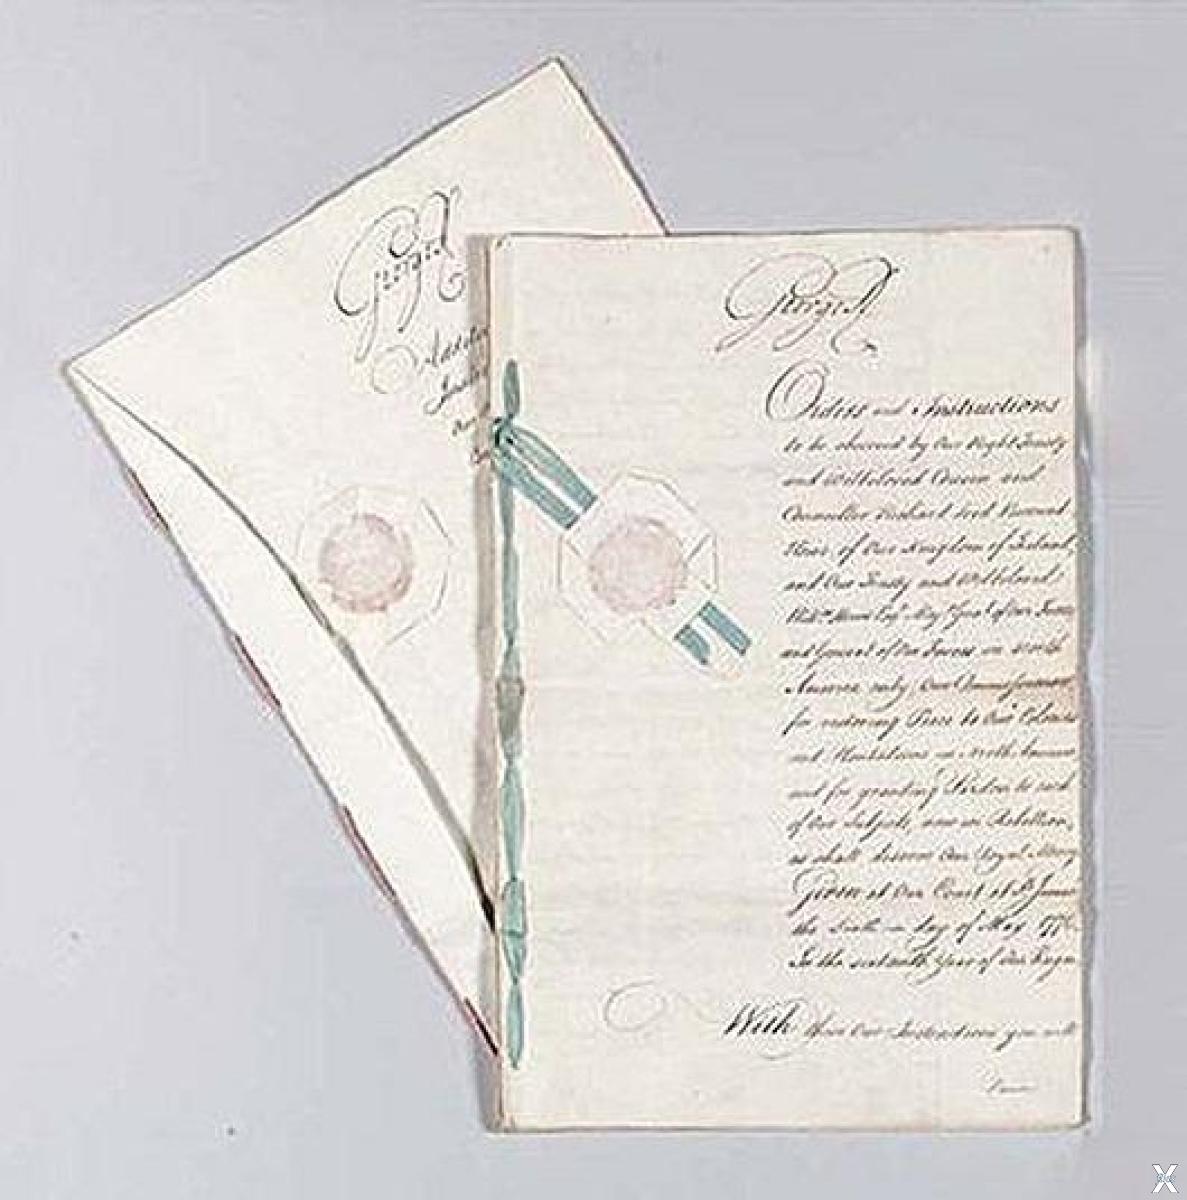 George R
George R
Orders and Instructions
to be observed by Our Right Trusty
and Welbeloved Cousin and
Councillor Richard Lord Viscount
Howe, of Our Kingdom of Ireland,
and Our Trusty and Welbeloved
Will.m Howe Esq.r Maj.r Gen.l of Our Forces
and General of Our Forces in North
America only, Our Commissioners
for restoring Peace to Our Colonies
and Plantations in North America
and for granting Pardon to such
of Our Subjects, now in Rebellion,
as shall deserve Our Royal Mercy
Given at Our Court at St James
the Sixth day of May 177
In the sixteenth Year of Our Reign
With these Our Instructions you will
X